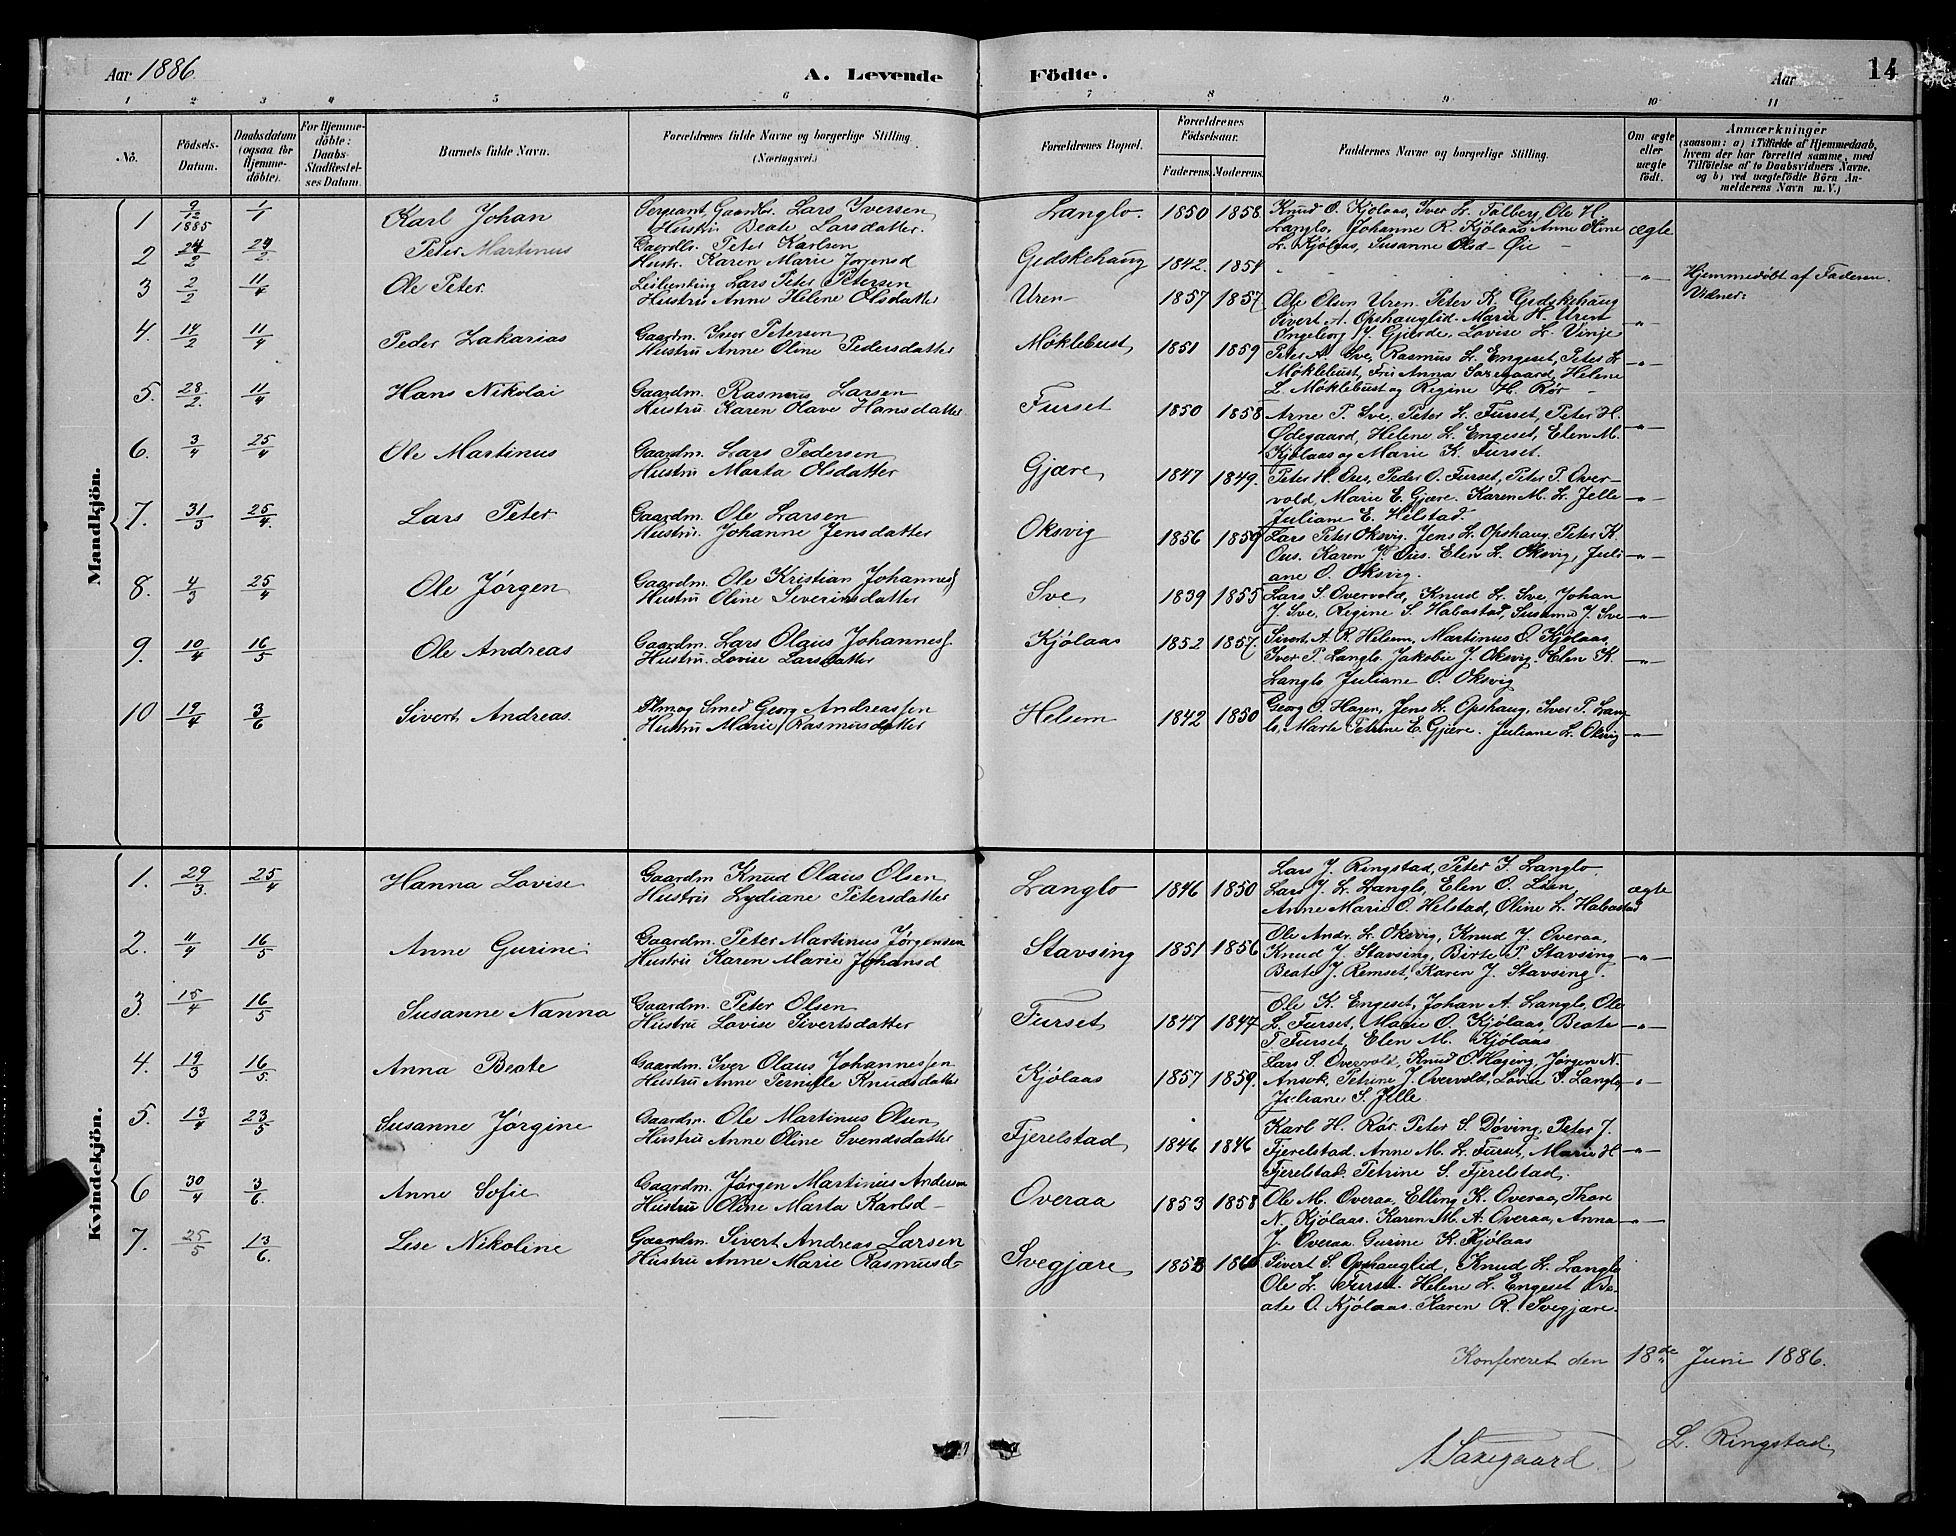 Aar 1886.
A. Levende Födte.
Aar
14
1 2 3 4 5 6 7 8 9 10 11
No.
Födsels-
Datum.
Daabsdatum
(ogsaa for
Hjemme-
döbte).
For Hjemme-
döbte:
Daabs-
Stadfestel-
ses Datum.
Barnets fulde Navn.
Forældrenes fulde Navne og borgerlige Stilling.
(Næringsvei.)
Forældrenes Bopæl.
Forældrenes
Födselsaar.
Faderens. Moderens.
Faddernes Navne og borgerlige Stilling.
Om ægte
eller
uægte
født.
Anmærkninger
(saasom: a) i Tilfælde af Hjemmedaab,
hvem der har forrettet samme, med
Tilföielse af to Daabsvidners Navne,
og b) ved uægtefödte Börn An-
melderens Navn m. V.)
Mandkjön.
1 9/12 1885 1/1 Karl Johan
Sergeant, Gaardbr. Lars Iversen
Hustru Beate Larsdatter.
Langlo. 1850 1858
Knud O. Kjölaas, Iver L. Talberg, Ole H.
Langlo, Johanne R. Kjölaas Anne Oline
L. Kjölaas, Susanne Olsd- Øie -
ægte
2 24/2 24/2 Peter Martinus
Gaardbr. Peter Karlsen
Hustr. Karen Marie Jørgensd
Gjdskehaug 1842. 1854
-"-
Hjemmedöbt af Faderen.
Vidner:
3 2/2 11/4 Ole Peter
Leilending Lars Peter Petersen
Hustru Anne Helene Olsdatter
Uren 1857 1857
Ole Olsen Uren. Peter K. Gjdskehaug
Sivert A. Opshauglid. Marie H. Uren
Ingeborg J. Gjerde, Lovise L. Vinje
-"-
4. 14/2 11/4 Peder Zakarias
Gaardm. Iver Petersen
Hustru Anne Oline Pedersdatter
Möklebust 1851 1859
Peter A. Sve, Rasmus L. Engeset, Peter L.
Möklebust, Fru Anna Saxegaard, Helene
L. Möklebust og Regine H. Rör -
-"-
5. 28/2. 11/4 Hans Nikolai
Gaardm. Rasmus Larsen
Hustru Karen Olave Hansdatter
Furset 1850 1858
Arne P. Sve, Peter L. Furset, Peter H.
Ødegaard, Helene L. Engeset, Elen M.
Kjölaas og Marie K. Furset.
-"-
6. 3/4 25/4 Ole Martinus
Gaardm. Lars Pedersen
Hustru Marta Olsdatter
Gjære 1847 1849.
Peter H. Ous, Peder O. Furset, Peter P. Over-
vold, Marie E. Gjære. Karen M. L. Jelle
Juliane E. Helstad.
-"-
7. 31/3 25/4. Lars Peter
Gaardm. Ole Larsen
Hustru. Johanne Jensdatter
Oksvig 1856 1859
Lars Peter Oksvig. Jens L. Opshaug. Peter K.
Ous. Karen P. Ous. Elen L. Oksvig, Juli-
ane O. Oksvig.
-"-
8. 4/3 25/4 Ole Jörgen
Gaardm. Ole Kristian Johannes
Hustru Oline Severinsdatter
Sve 1839 1855
Lars S. Overvold, Knud L. Sve, Johan
J. Sve, Regine S. Habostad, Susanne J. Sve
-"-
9. 10/4 16/5 Ole Andreas
Gaardm. Lars Olaus Johannes
Hustru. Lovise Larsdatter
Kjölaas 1852 1857.
Sivert A. R. Helsem, Martinus O. Kjölaas,
Iver P. Langlo Jakobie J. Oksvig. Elen K.
Langlo Juliane O. Oksvig
-"-
10 19/4 3/6 Sivert Andreas
Plmog Smed Georg Andreassen
Hustru Marie Rasmusdatter
Helsem 1842 1850
Georg O. Hagen, Jens L. Opshaug, Iver P. Lang
lo, Marte Petrine E. Gjære. Juliane L. Oksvig
-"-
Kvindekjön.
1. 29/3. 25/4 Hanna Lovise
Gaardm Knud Olaus Olsen
Hustru Lydiane Petersdatter
Langlo 1846 1850
Lars J. Ringstad, Peter J. Langlo.
Lars J. L. Langlo, Elen O. Lien,
Anne Marie O. Helstad, Oline L. Habostad
ægte
2. 11/4 16/5 Anne Gurine
Gaardm. Peter Martinus Jørgensen
Hustru Karen Marie Johansd
Stavsing 1851 1856
Ole Andr. L. Oksvig, Knud J. Overaa,
Knud J. Stavsing, Birte P. Stavsing
Beate J. Remset, Karen J. Stavsing.
-"-
3. 15/4 16/5 Susanne Nanna
Gaardm. Peter Olsen
Hustru Lovise Sivertsdatter
Furset 1847 1847
Ole K. Engeset, Johan A. Langlo, Ole
L. Furset, Marie O. Kjölaas, Beate
T. Furset, Elen M. Kjölaas
-"-
4. 19/3 16/5. Anna Beate
Gaardm. Iver Olaus Johannessen
Hustru Anne Pernille Knudsdatter
Kjölaas 1857 1859.
Lars S. Overvold, Knud O. Hageng, Jørgen N.
Ansok, Petrine J. Overvold, Lovise P. Langlo,
Juliane S. Jelle.
-"-
5. 13/4 23/5 Susanne Jörgine
Gaardm. Ole Martinus Olsen
Hustru Anne Oline Svendsdatter
Fjerelstad 1846 1846
Karl H. Rör. Peter S. Döving, Peter J.
Fjerelstad. Anne M. L. Furset, Marie H
Fjerelstad. Petrine S. Fjerelstad.
-"-
6 30/4 3/6. Anne Sofie
Gaardm. Jørgen Martinus Andersen
Hustru Oline Marta Karlsd-
Overaa 1853 1858
Ole M. Overaa, Elling K. Overaa, Thore
N. Kjölaas. Karen M. A. Overaa, Anna
J. Overaa. Gurine K. Kjölaas
-"-
7. 25/5 13/6. Lise Nikoline
Gaardm. Sivert Andreas Larsen
Hustru Anne Marie Rasmusd-
Svegjære 1853 1860
Sivert S. Opshauglid, Knud L. Langlo
Ole L. Furset. Helene L. Engeset Be-
ate O. Kjölaas. Karen R. Svegjære.
Konfereret den 18de Juni 1886.
Saxegaard.
L. Ringstad.